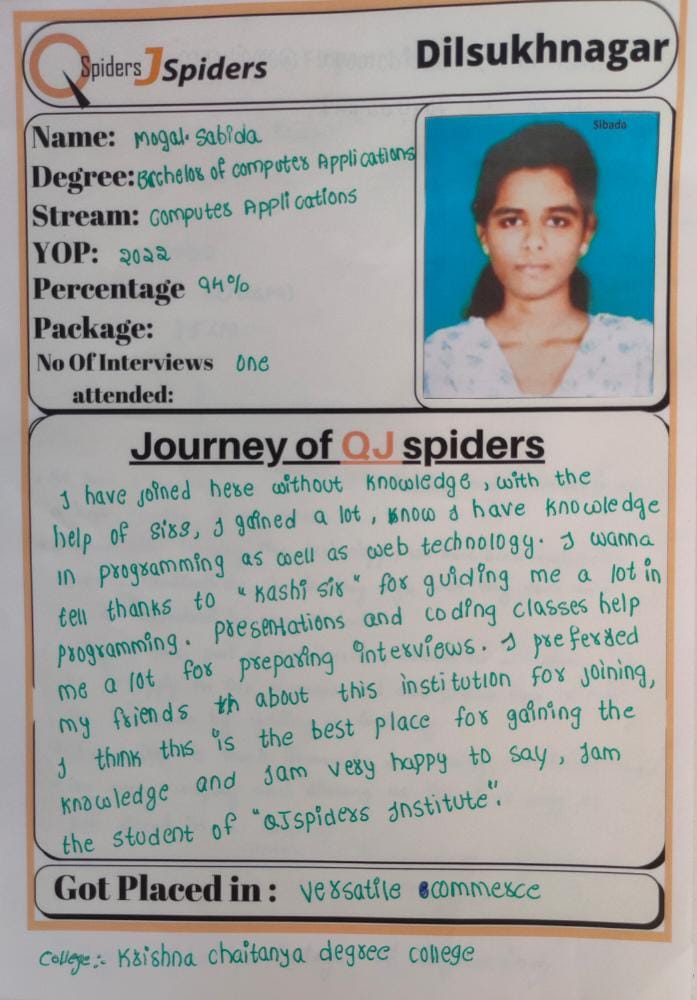 QSpiders JSpiders
Dilsukhnagar
Name: Mogal. Sabida
Degree: Bachelor of computer Applications
Stream: Computer Applications
YOP: 2022
Percentage 94%
Package:
No Of Interviews one
attended:
Sibada
Journey of QJ spiders
I have joined here without knowledge, with the
help of sirs, I gained a lot, know I have knowledge
in programming as well as web technology. I wanna
tell thanks to "Kashi sir" for guiding me a lot in
programming. presentations and coding classes help
me a lot for preparing interviews. I preferred
my friends th about this institution for joining,
I think this is the best place for gaining the
knowledge and Iam very happy to say, Iam
the student of "QJspiders Institute".
Got Placed in : versatile ecommerce
College:- Krishna chaitanya degree college